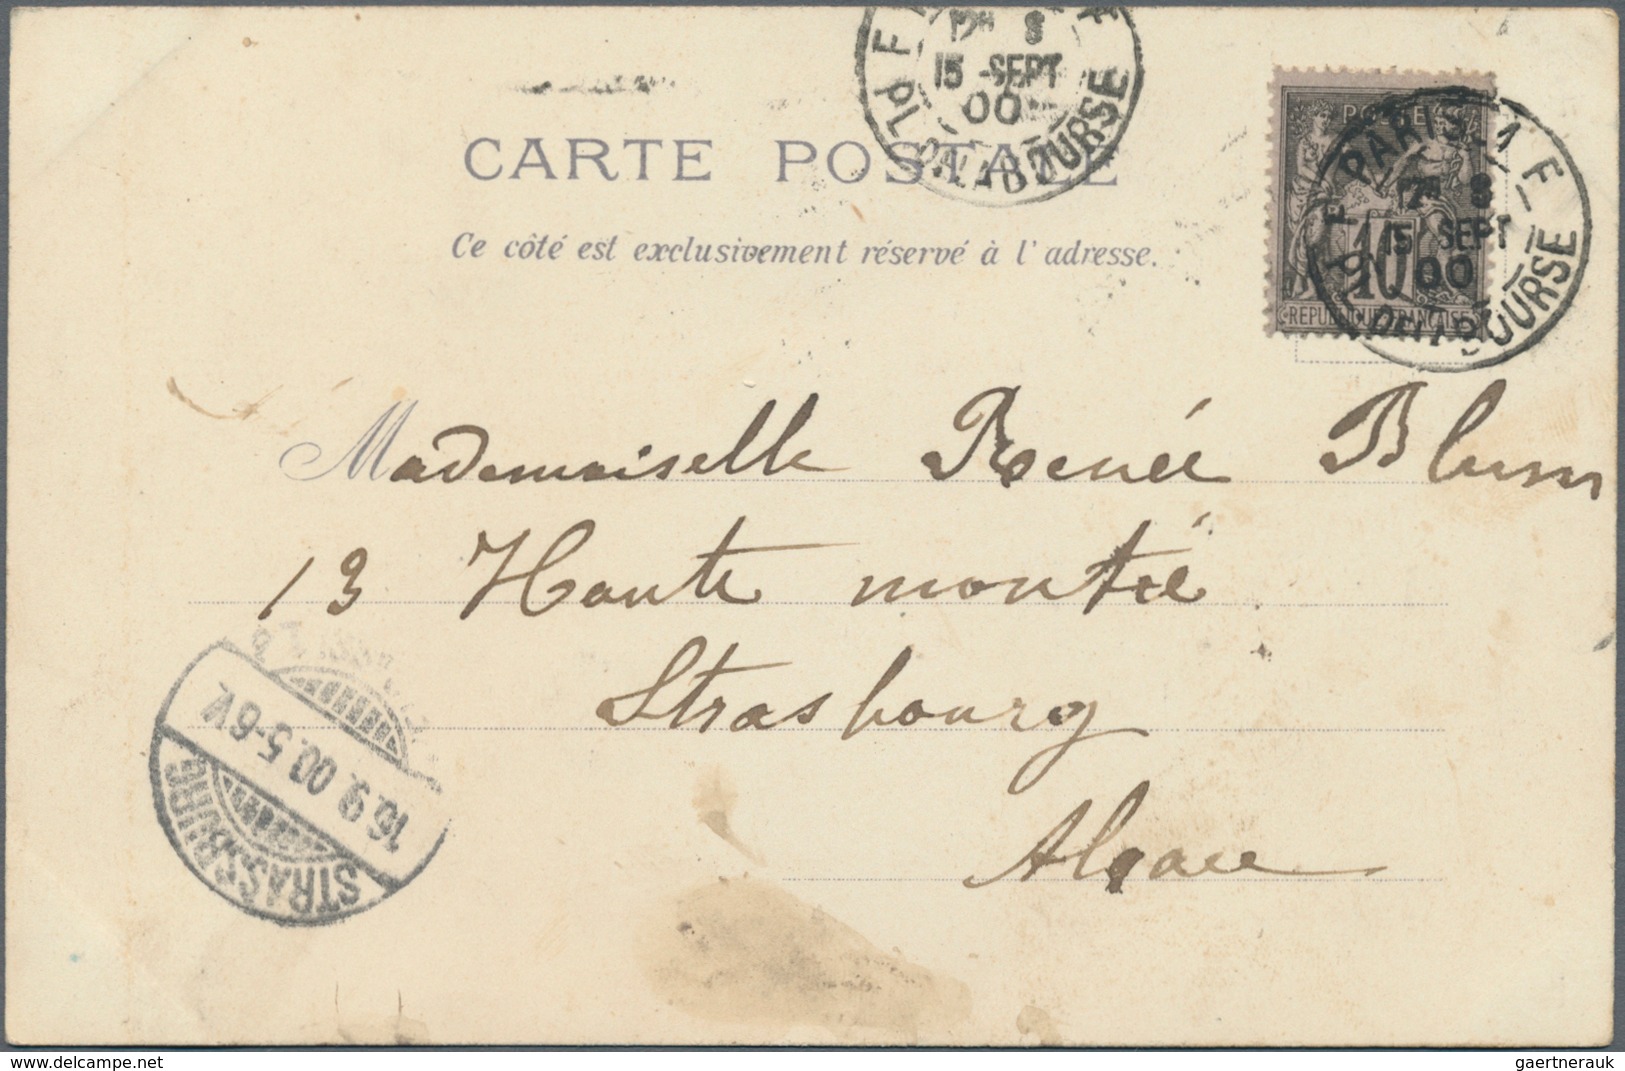 12E 8
15 SEPT
00
PL. DE LA BOURSE
POSTE
10
REPUBLIQUE FRANÇAISE
PARIS
12E 8
15 SEPT
00
PL. DE LA BOURSE
CARTE POSTALE
Ce côté est exclusivement réservé à l'adresse.
Mademoiselle Renée Blum
13 Haute montée
Strasbourg
Alsace
16.9.00.5-6V.
STRASSBURG
www.delcampe.net
gaertnerauk